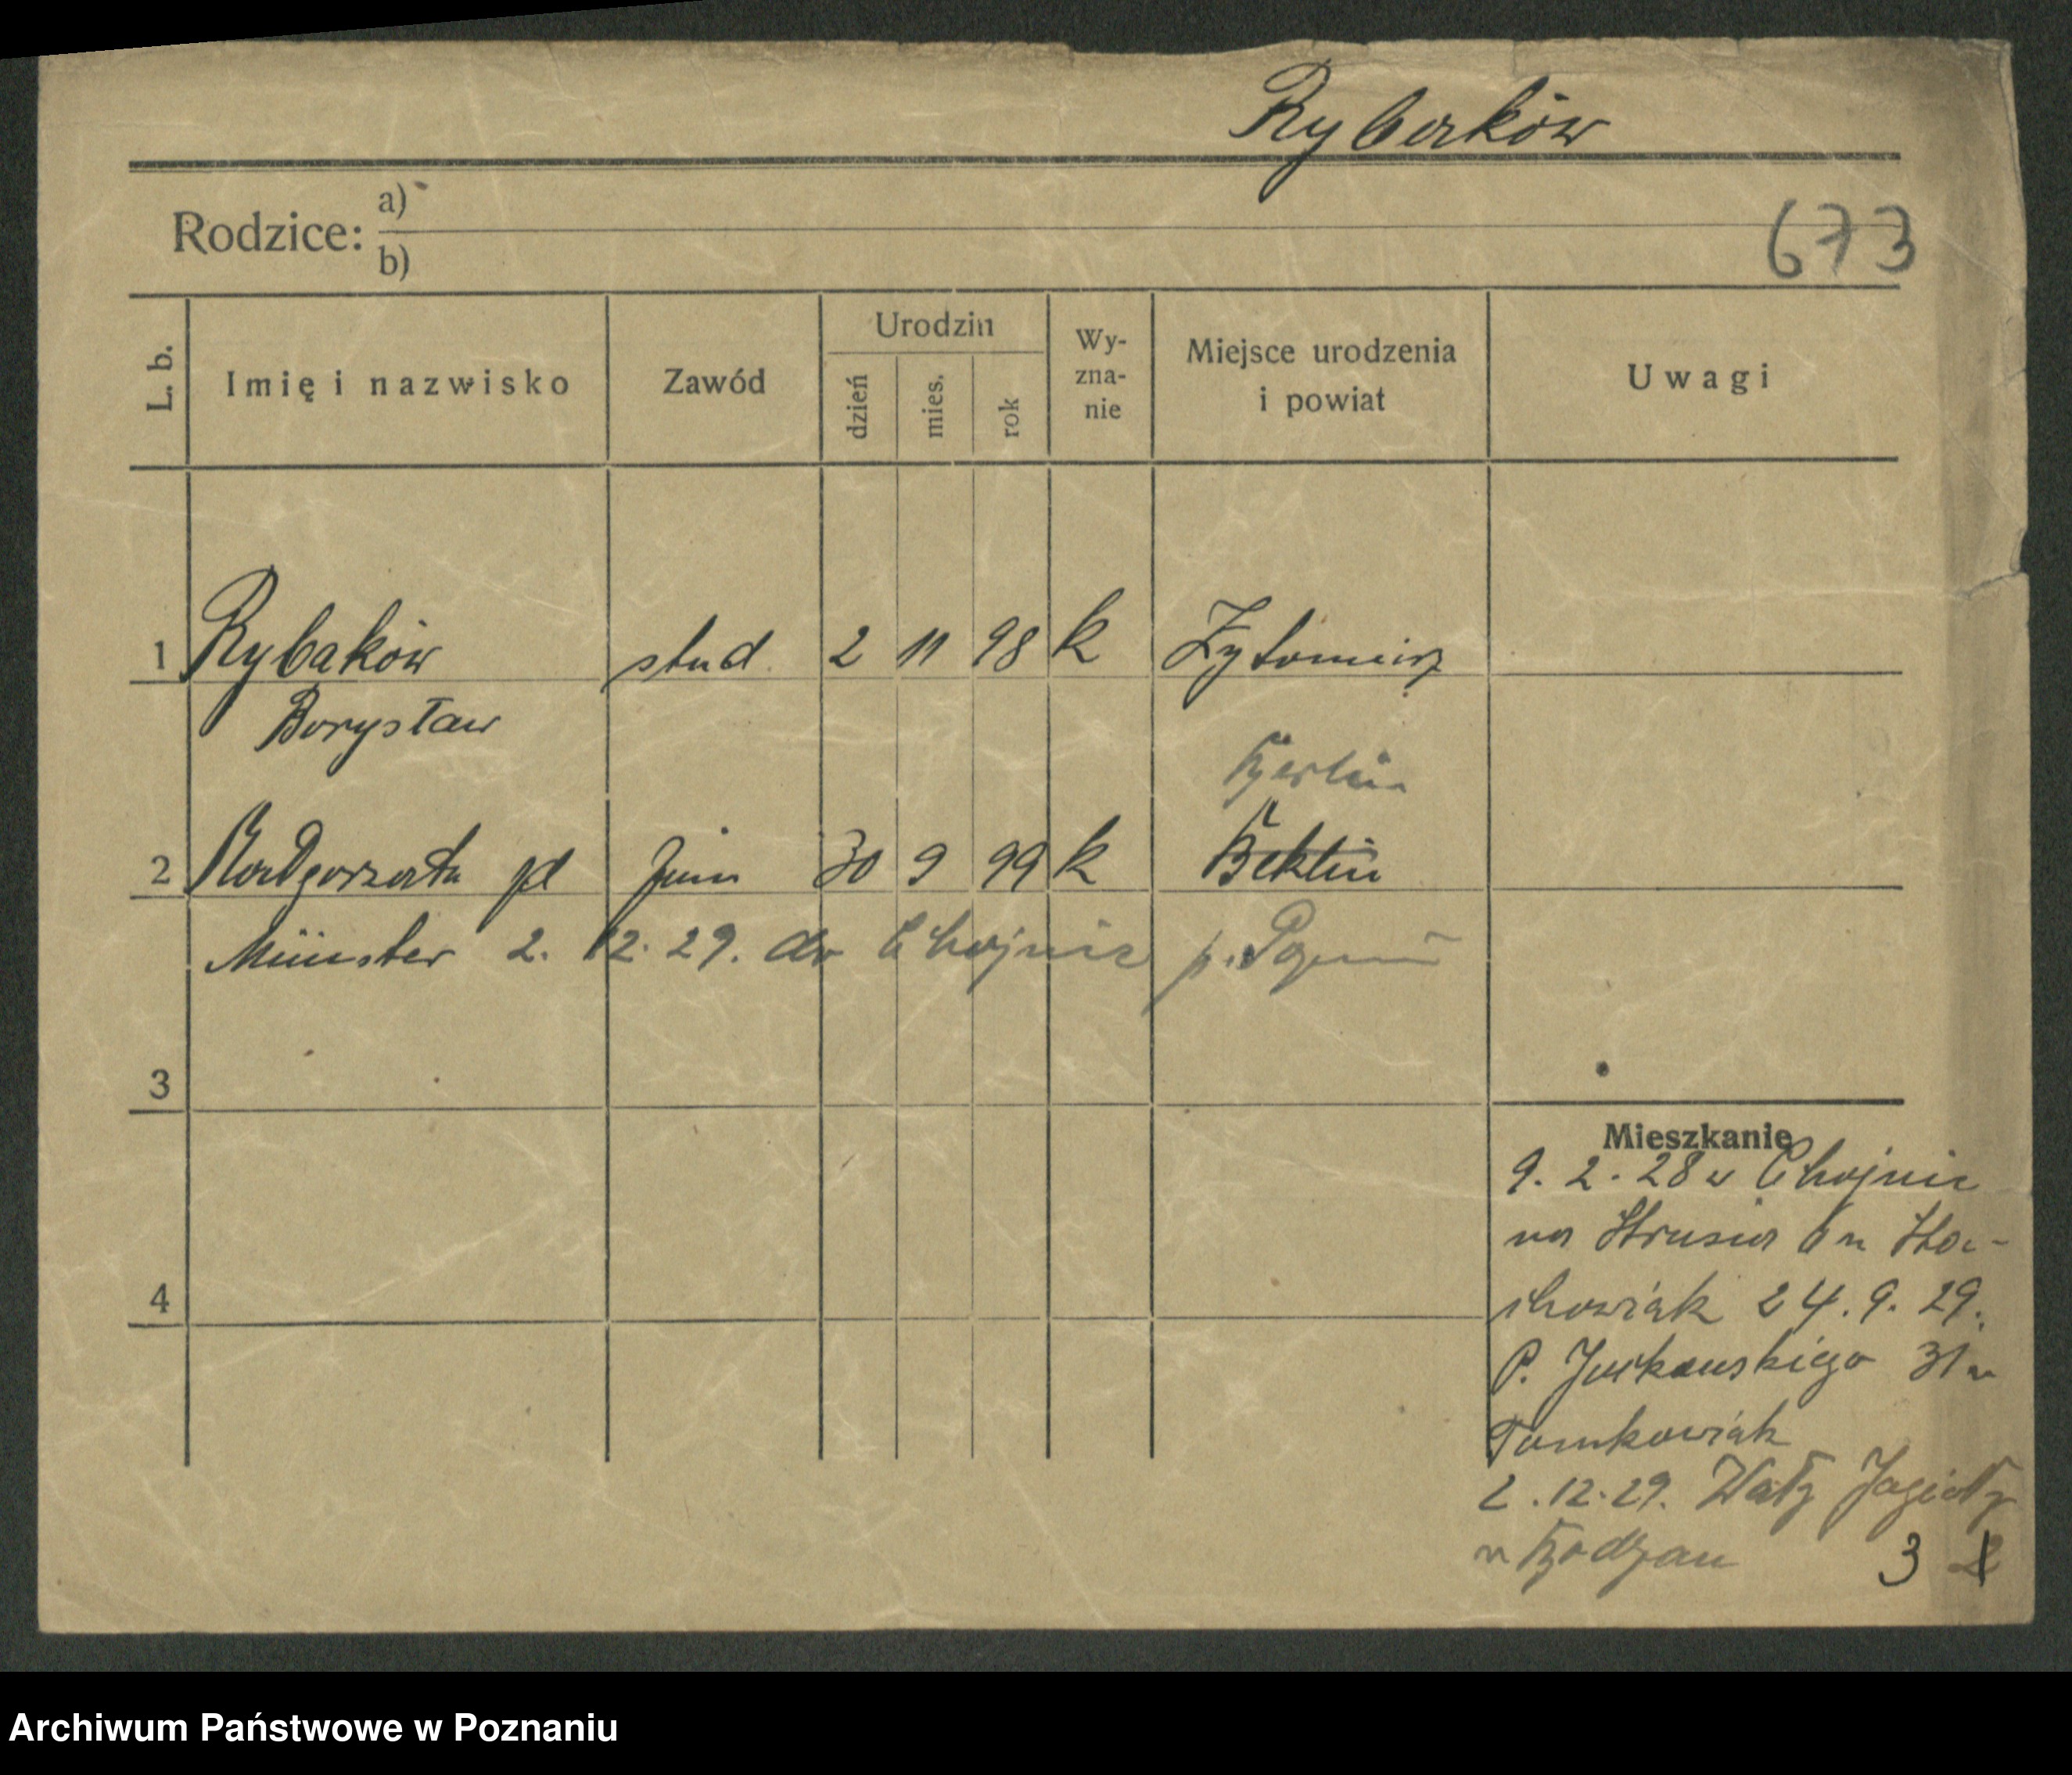 Rybaków
Rodzice: a)
b)
673
L. b.
Imię i nazwisko
Zawód
Urodzin
dzień
mies.
rok
Wy-
zna-
nie
Miejsce urodzenia
i powiat
Uwagi
1 Rybaków stud. 2 11 98 k Żytomierz
Borysław
Berlin
2 Małgorzata 30 9 99 k
Münster 2. 12. 29. do Chojnic p.
3
Mieszkanie
9. 2. 28 w Chojnic
na Strusia 6 m
4
24. 9. 29.
P. Jurkowskiego 31 m
Tomkowiak
2. 12. 29. Wały Jagiełły
3
Archiwum Państwowe w Poznaniu